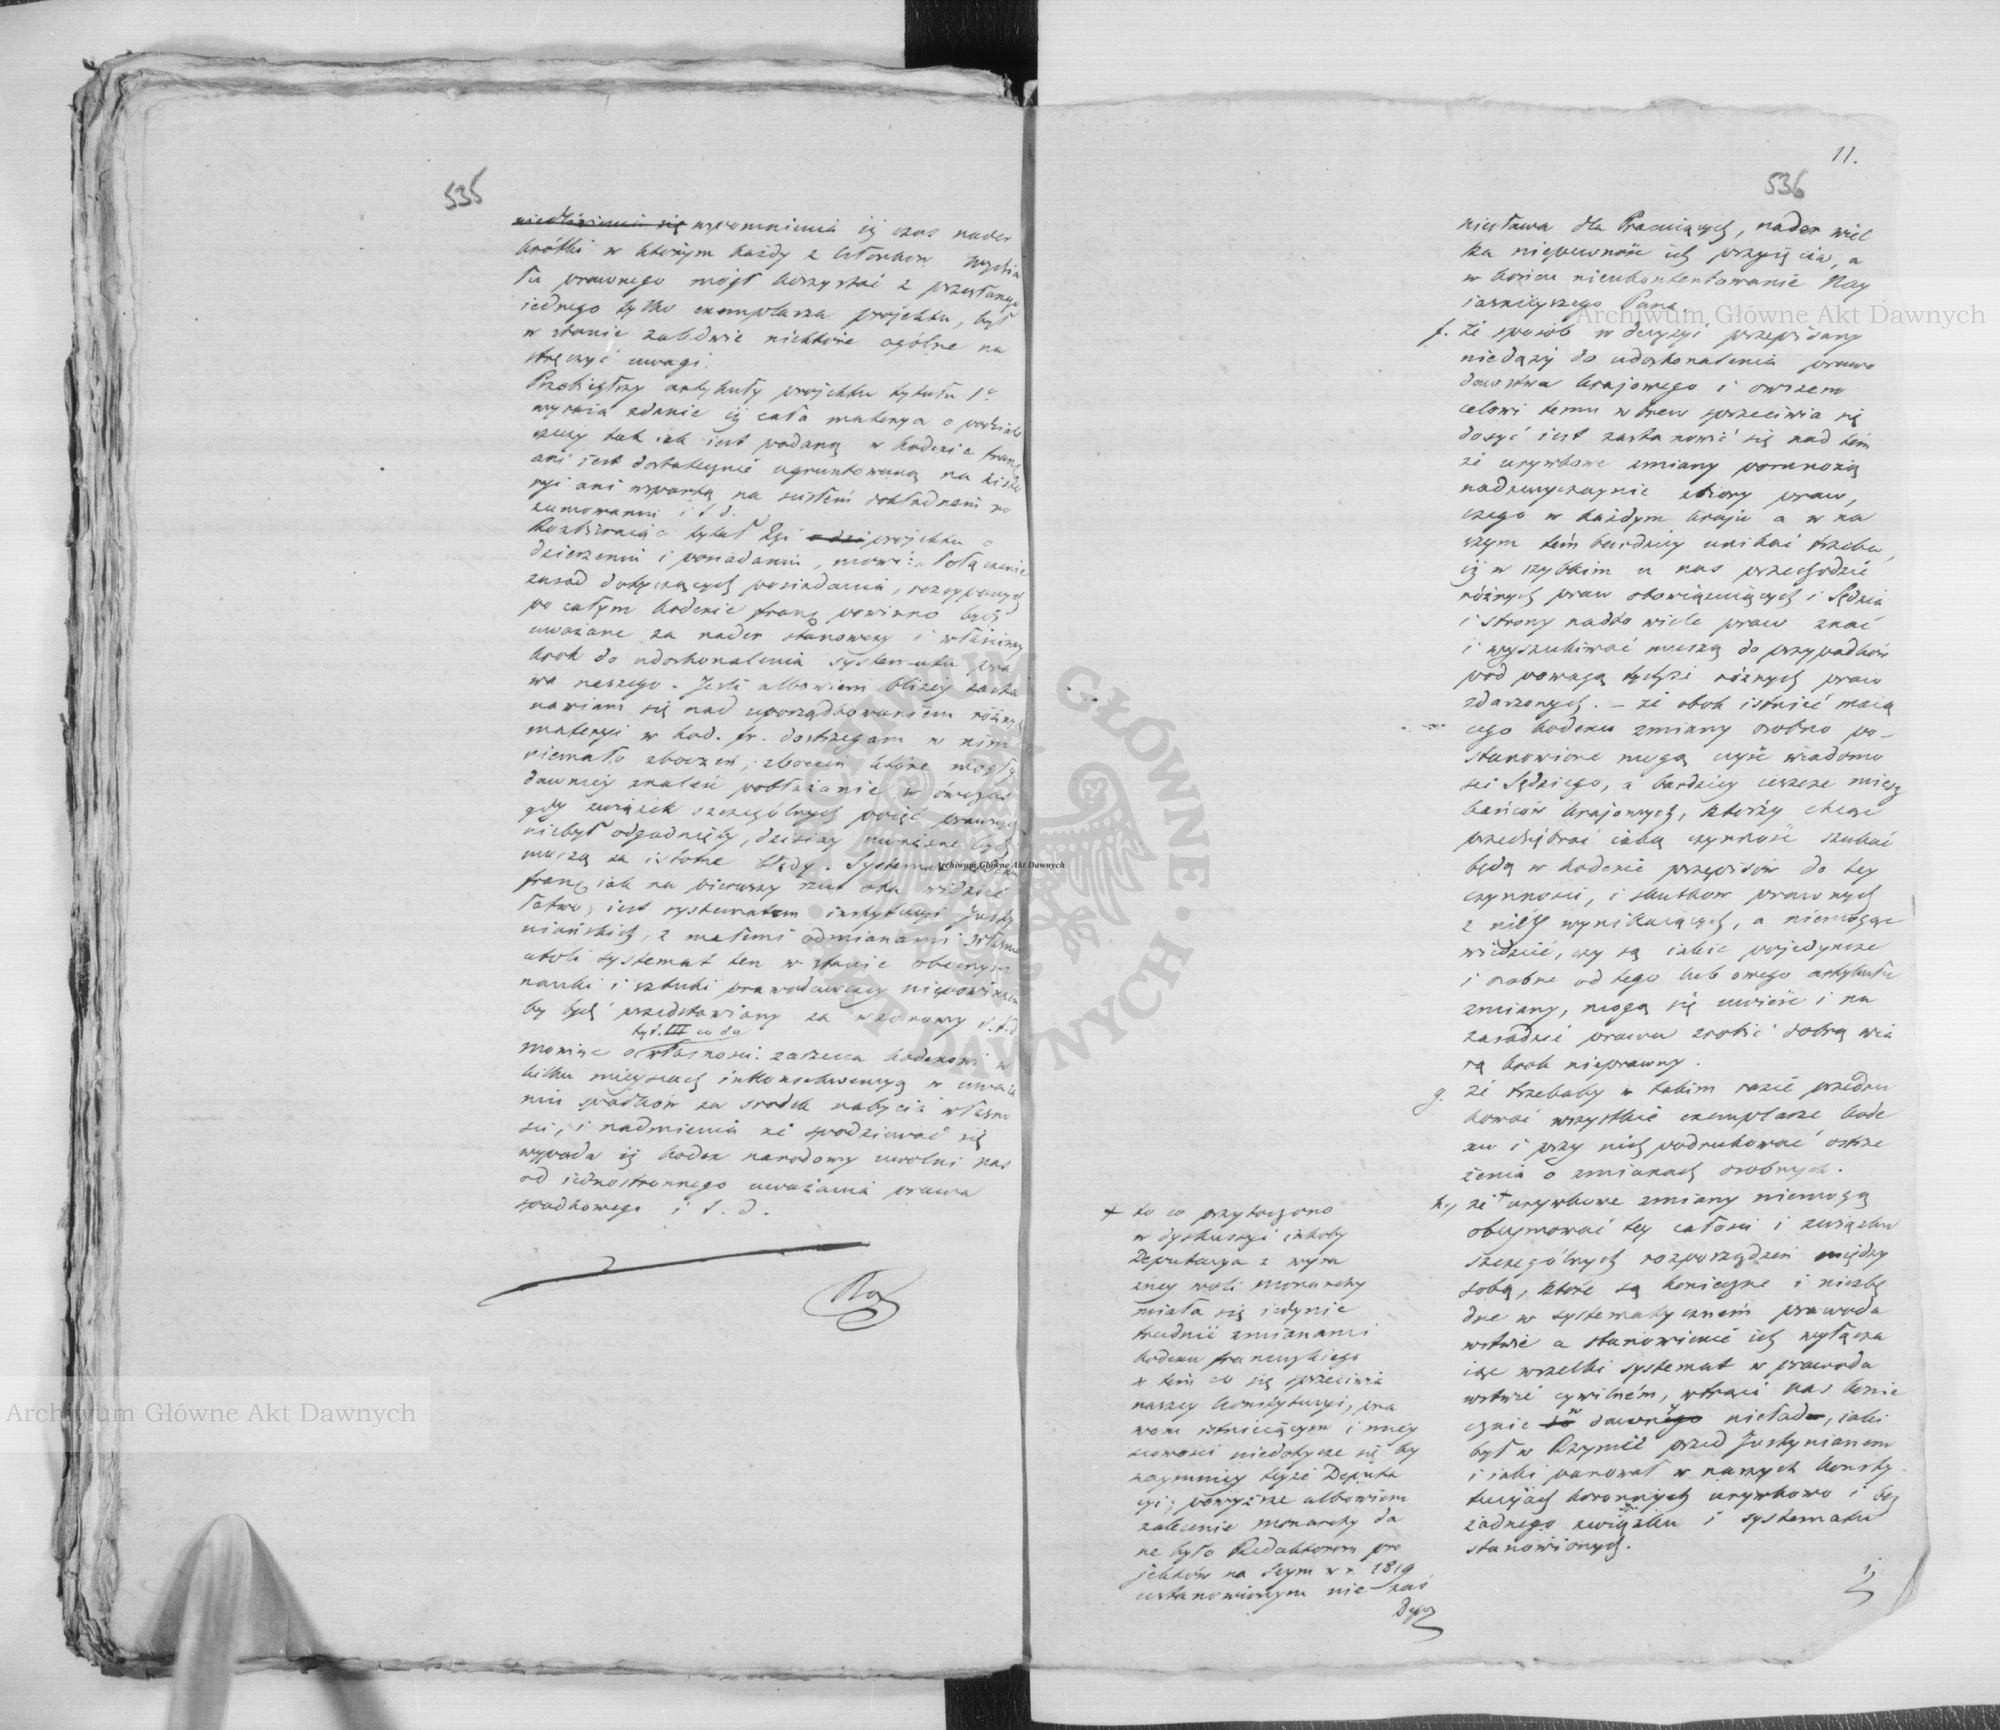 535
niedzielenia się wspomnienia iż czas nader
krótki w którym każdy z Członków Wydzia
łu prawnego mógł korzystać z przesłanego
jednego tylko exemplarza projektu, był
w stanie zaledwie niektóre ogólne na
stręczyć uwagi.
artykuły projektu tytułu 1o
wyraża zdanie iż cała materya o podziale
rzeczy tak jak jest podaną w kodexie franc
ani jest dostatecznie ugruntowaną na histo
ryi ani wspartą na ścisłem dokładnem ro
zumowaniu i t. d.
Rozbierając tytuł IIgi projektu o
dzierżeniu i posiadaniu, mówi: złączenie
zasad dotyczących posiadania, rozsypanych
po całym kodexie franc powinno być
uważane za nader stanowczy i właściwy
krok do udoskonalenia systematu pra
wa naszego. Jeśli albowiem bliżej zasta
nawiam się nad uporządkowaniem różnych
materyi w kod. fr. dostrzegam w nim
niemało zboczeń, zboczeń które mogły
dawniej znaleść pobłażanie w ówczas
gdy związek szczególnych pojęć prawnych
niebył odgadnięty, dzisiaj uważane być
muszą za istotne błędy. Systemat kodexu
franc, jak na pierwszy rzut oka widzieć
łatwo, jest systematem instytucyi Justy
niańskich, z małemi odmianami
atoli systemat ten w stanie obecnym
nauki i sztuki prawodawczey niepowinien
by być przedstawiany za wzorowy i. t. d
tyt. III co do
Mówiąc o własności zarzuca kodexowi w
kilku mieyscach inkonsekwencyą w uważa
niu spadków za srodek nabycia własno
ści, i nadmienia że spodziewać się
wypada iż kodex narodowy uwolni nas
od jednostronnego uważania prawa
spadkowego i t. d.
11.
536
dla Pracujących, nader wiel
ka niepewność ich przyjęcia, a
w końcu nieukontentowanie Nay
iaśnieyszego Pana
f. że sposób w decyzyi przepisany
niedąży do udoskonalenia prawo
dawstwa krajowego i owszem
celowi temu wbrew sprzeciwia się
dosyć jest zastanowić się nad tem
że urywkowe zmiany pomnożą
nadzwyczaynie zbiory praw,
czego w każdym kraju a w na
szym tem bardziey unikać trzeba,
iż w szybkim u nas przechodzie
różnych praw obowiązujących i Sędzia
i strony nadto wiele praw znać
i wyszukiwać muszą do przypadków
pod powagą tychże różnych praw
zdarzonych. – że obok istnieć mają
cego kodexu zmiany osobno po-
stanowione mogą uyść wiadomo
ści Sędziego, a bardziey jeszcze miesz
kańców krajowych, którzy chcąc
przedsiębrać jaką czynność szukać
będą w kodexie przepisów do tey
czynności, i skutków prawnych
z niey wynikających, a niemogąc
wiedzieć, czy są jakie pojedyncze
i osobne od tego lub owego artykułu
zmiany, mogą się uwieść i na
zasadzie prawa zrobić dobrą wia
rą krok nieprawny.
g. że trzebaby w takim razie przedru
kować wszystkie exemplarze kode
xu i przy nich podrukować ostrze
żenia o zmianach osobnych.
h, że + urywkowe zmiany niemogą
obeymować tey całości i związku
szczególnych rozporządzeń między
sobą, które są konieczne i niezbę
dne w systematycznem prawoda
wstwie a stanowienie ich wyłącza
jąc wszelki systemat w prawoda
wstwie cywilném, wtrąci nas konie
cznie w dawny nieład, jaki
był w Rzymie przed Justynianem
i jaki panował w naszych konsty
tucyach koronnych urywkowo i bez
żadnego związku i systematu
stanowionych.
+ to co przytoczono
w dyskussyi jakoby
Deputacya z wyra
źney woli Monarchy
miała się jedynie
trudnić zmianami
kodexu francuzkiego
w tem co się sprzeciwia
naszey konstytucyi, pra
wom istniejącym i miey
scowości niedotycze się by
naymniey teyże Deputa
cyi; powyższe albowiem
zalecenie Monarchy da
ne było Redaktorom pro
jektów na Seym w r. 1819
ustanowionym nie zaś
i,